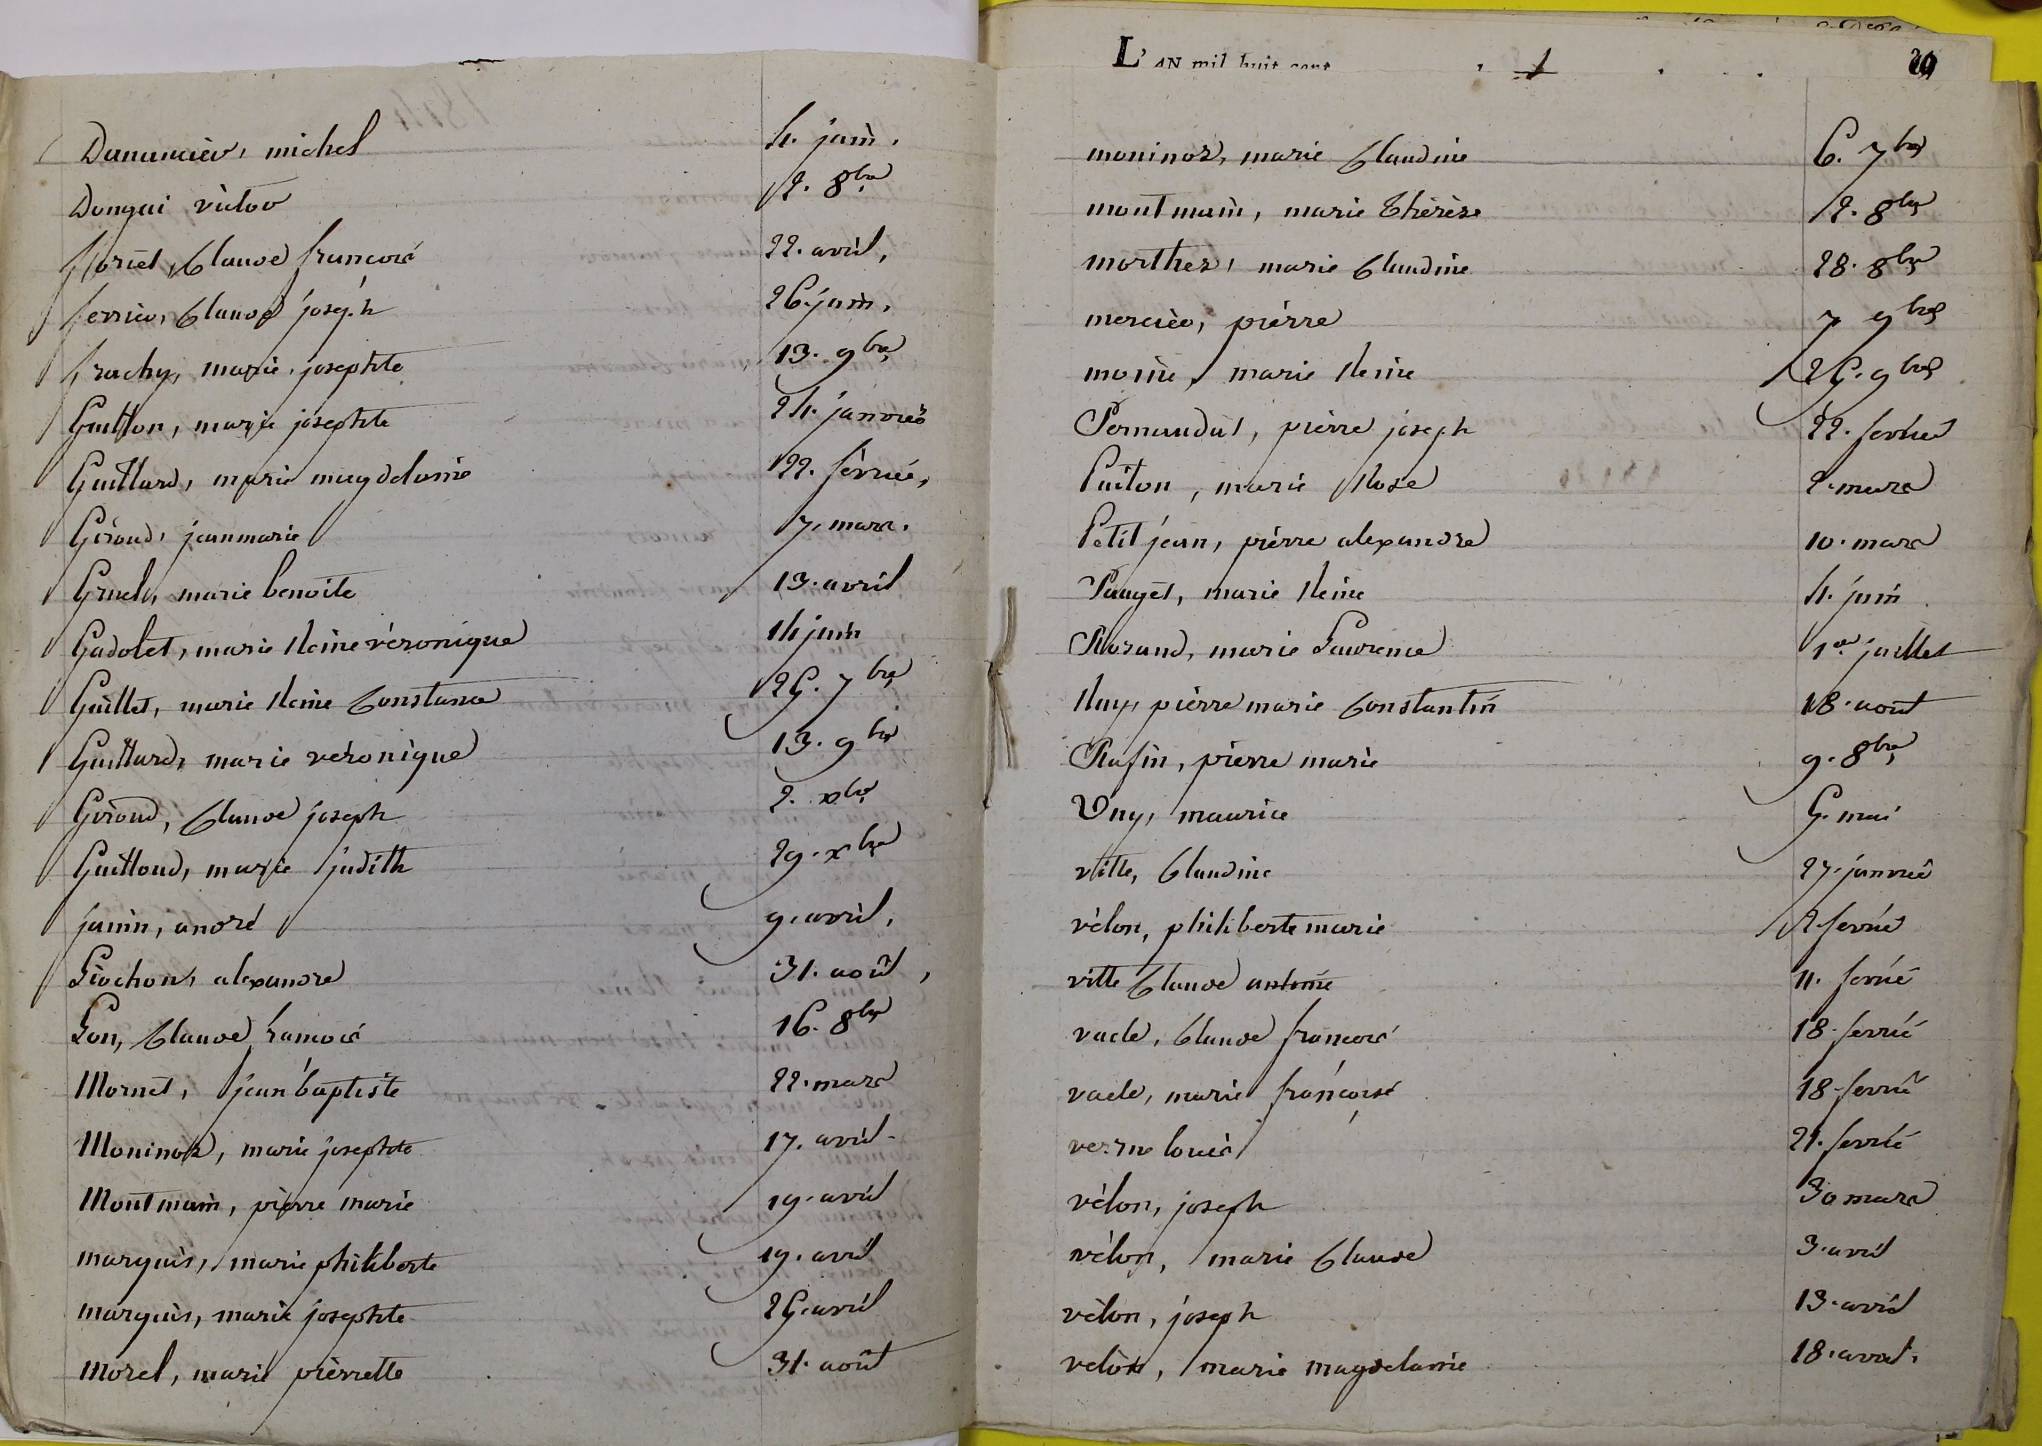 Danancier, michel 4. juin.
Dongui victor 12. 8bre
floriet, Claude francois 22. avril,
ferrier, Claude joseph 26 juin,
frachy, marie josephte 13. 9bre
Guillon, marie josephte 24. janvier
Guillard, marie magdelaine 22. février,
Géroud, jeanmarie 7. mars.
Gruel, marie benoite 13. avril
Gadolet, marie Reine véronique 14 juin
Guillet, marie Reine Constance 25. 7bre
Guillard, marie véronique 13. 9bre
Géroud, Claude joseph 2. xbre
Guilloud, marie judith 29. xbre
janin, andré 9. avril,
Liochon, alexandre 31. août,
Lon, Claude francois 16. 8bre
Mornet, jean baptiste 22. mars
Moninot, marie josephte 17. avril
Montmain, pierre marie 19. avril
marquis, marie philiberte 19. avril
marquis, marie josephte 25. avril
morel, marie pierrette 31. août
L'AN mil huit cent
moninot, marie Claudine 6. 7bre
montmain, marie Thérèse 12. 8bre
morthez, marie Claudine 28. 8bre
mercier, pierre 7 9bre
moine, marie Reine 25. 9bre
Pernaudat, pierre joseph 22. fevrier
Puiton, marie Rose 2. mars
Petit jean, pierre alexandre 10. mars
Pauget, marie Reine 4. juin
Rosand, marie Laurence 1er juillet
Ruy, pierre marie Constantin 18. aout
Rafin, pierre marie 9. 8bre
Uny, maurice 5. mai
ville, Claudine 27. janvier
vélon, philiberte marie 2. fevrier
ville Claude antoine 11. fevrier
vacle, Claude francois 18. fevrier
vacle, marie francoise 18. fevrier
verne louis 21. fevrier
vélon, joseph 30 mars
vélon, marie Claude 3. avril
vélon, joseph 13. avril
vélon, marie magdelaine 18. avril.